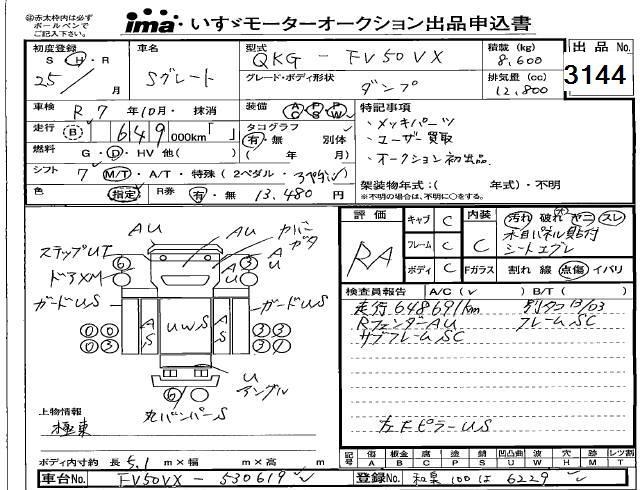 ㊟赤太枠内は必ず
ボールペンで
ご記入下さい。
ima いすゞモーターオークション出品申込書
初度登録
S・H・R
25/ 月
車名
Sグレート
型式
QKG - FV50VX
積載 (kg)
8,600
出品 No.
3144
グレード・ボディ形状
ダンプ
排気量 (cc)
12,800
車検 R 7年10月・抹消
装備 AC PS PW
特記事項
・メッキパーツ
・ユーザー買取
・オークション初出品
走行 B 649 000km「 」
タコグラフ
有・無 別体
( 年 月)
燃料 G・D・HV 他( )
シフト 7 M/T・A/T・特殊(2ペダル・
架装物年式:( 年式)・不明
※不明の場合は、不明に○をする。
色 指定 R券 有・無 13,480 円
評価
RA
キャブ C
フレーム C
ボディ C
内装
C
Fガラス
汚れ 破れ ヤニ スレ
木目パネル貼付
シートエプレ
割れ 線 点傷 イバリ
検査員報告 A/C(✓ ) B/T( )
走行648691km 別タコ 13/03
RフェンダーAU フレームSC
サブフレームSC
左FピラーUS
ステップUT
ドアXM
ガードUS
AU
AU
カバー
ガタ
AU
AU
ガードUS
AS
UWS
AS
U
アングル
⑥ ③
⓪⓪ ③③
⓪③ ③①
⑥
バンパーS
上物情報
極東
ボディ内寸約 長 5.1 m×幅 m×高 m
記号 傷A 板金B 腐C 塗P 錆S 凹凸曲U 波W 穴H 跡M レツ割T
車台No. FV50VX - 530619
登録No. 和泉 100 は 6229